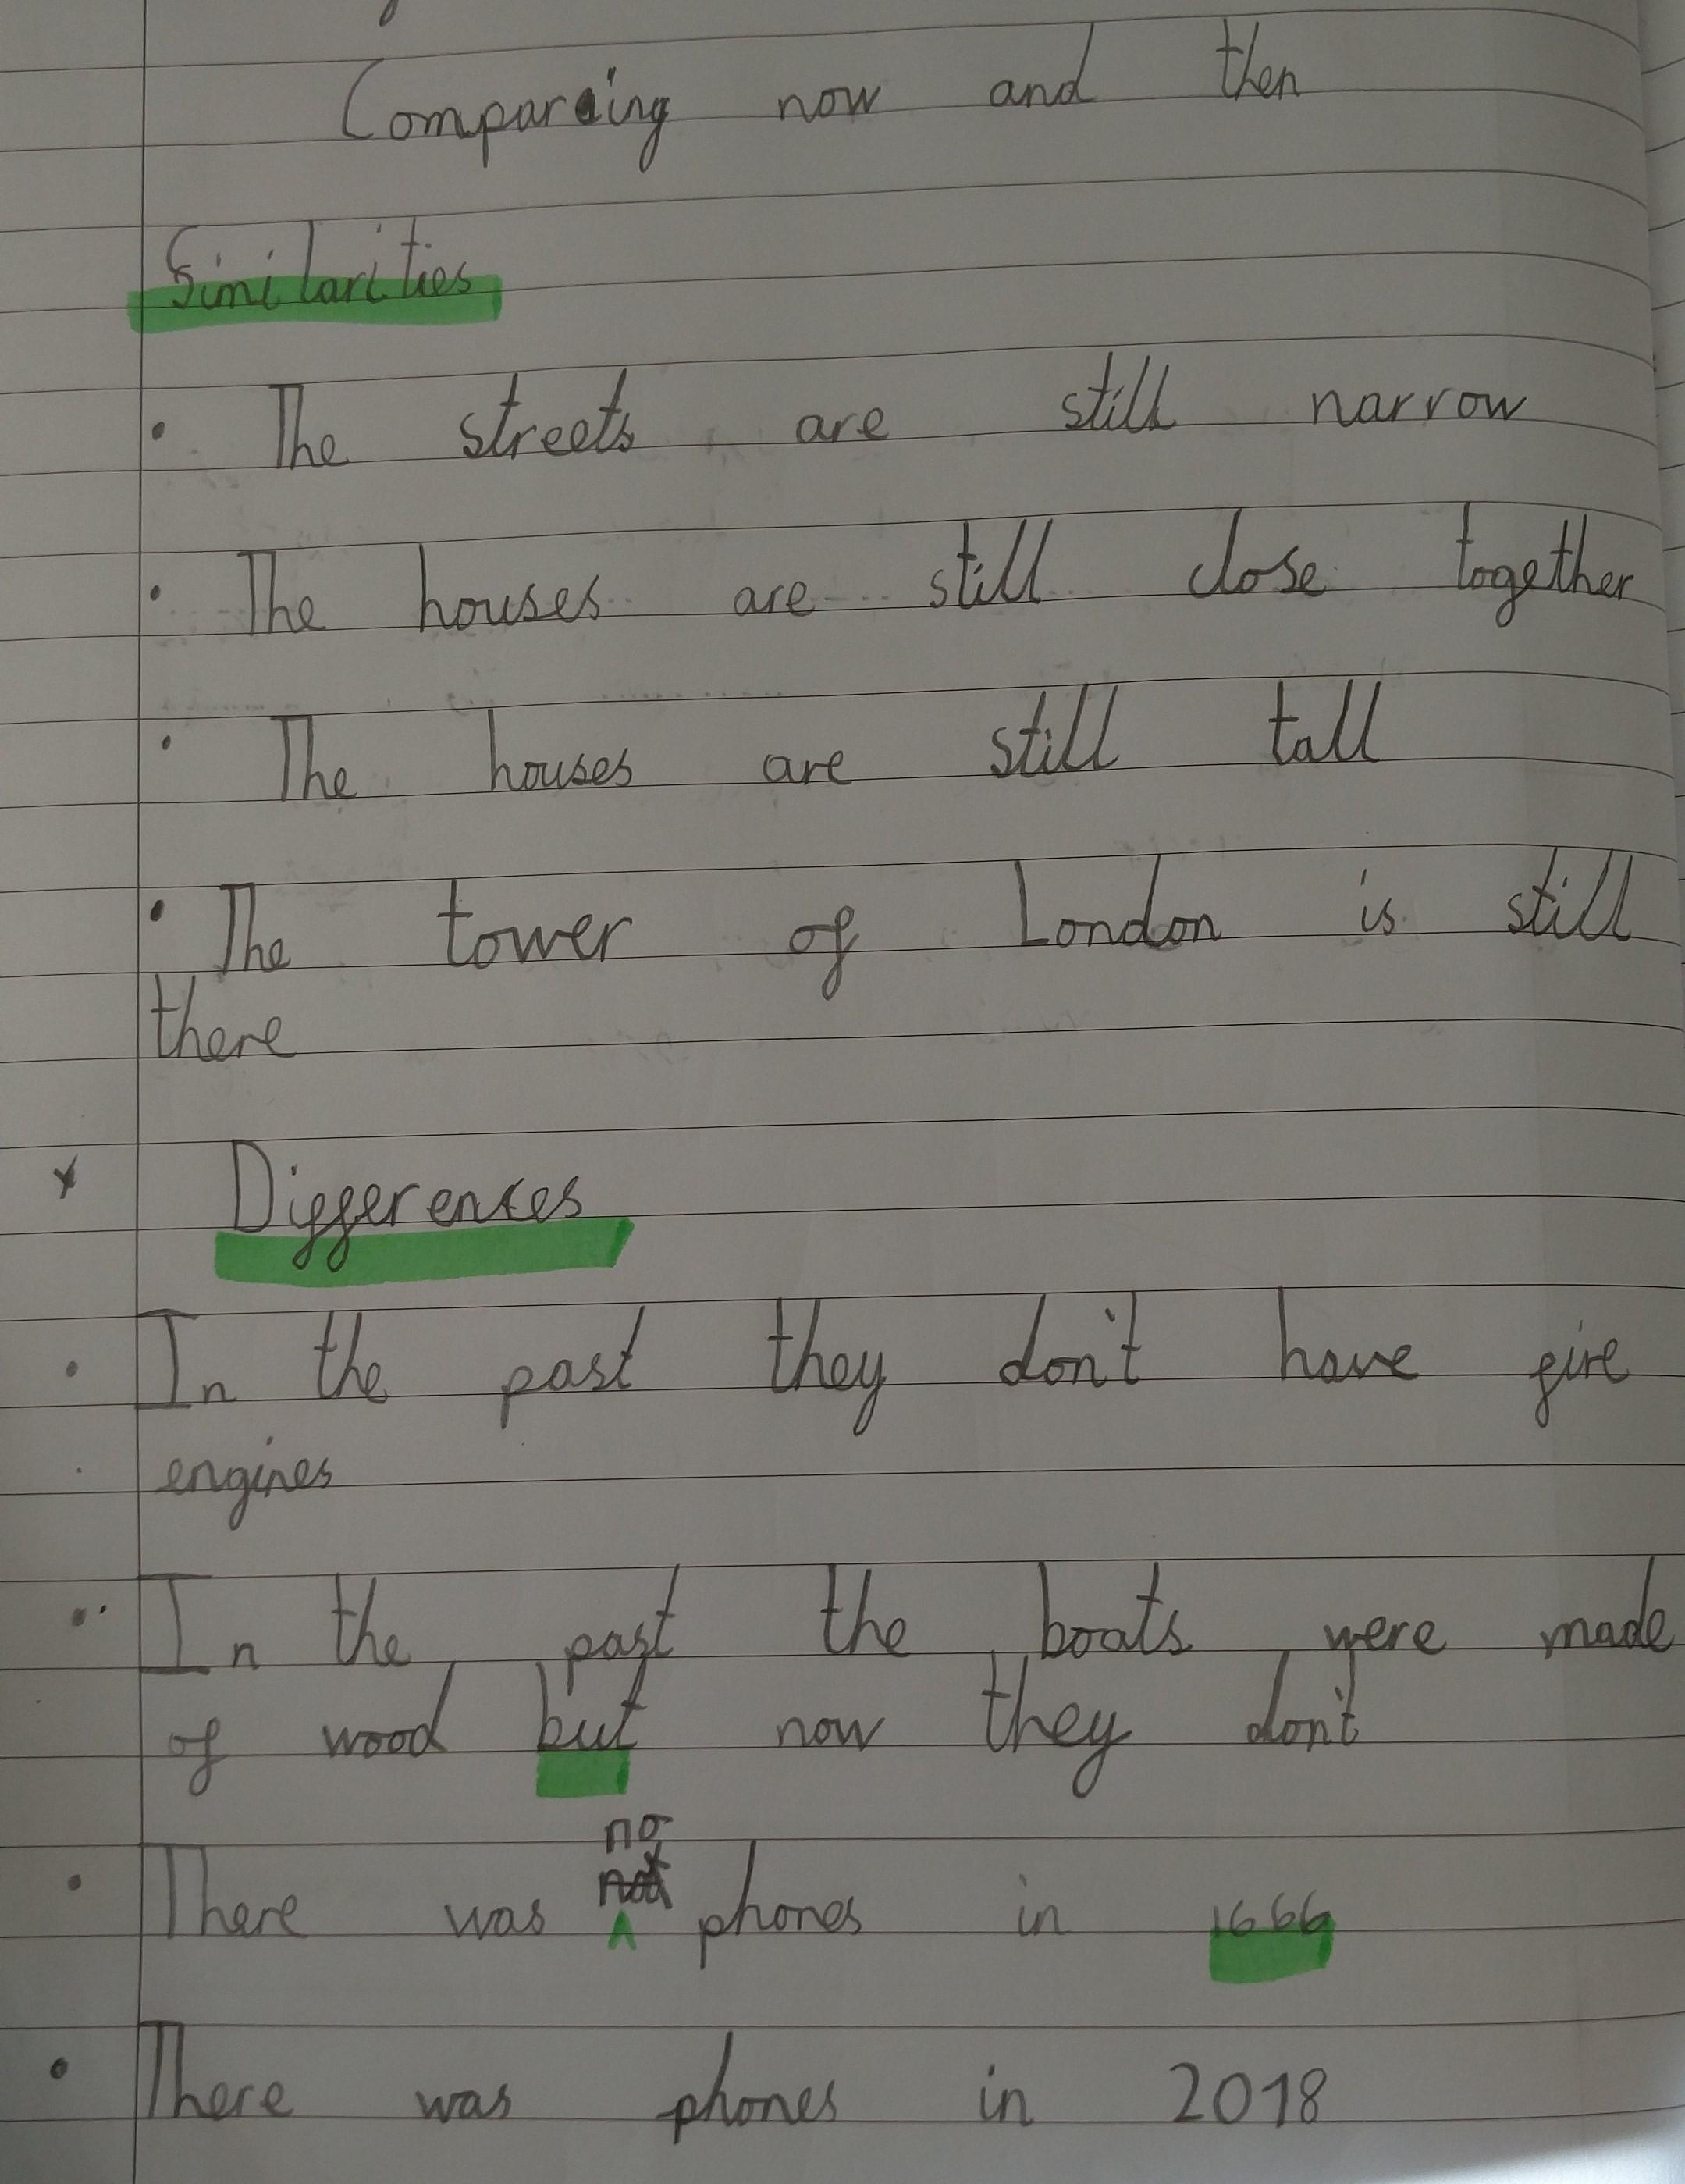 Comparing now and then
Similarities
• The streets are still narrow
• The houses are still close together
• The houses are still tall
• The tower of London is still
there
Differences
• In the past they don't have fire
engines
• In the past the boats were made
of wood but now they don't
no
not
• There was phones in 1666
• There was phones in 2018